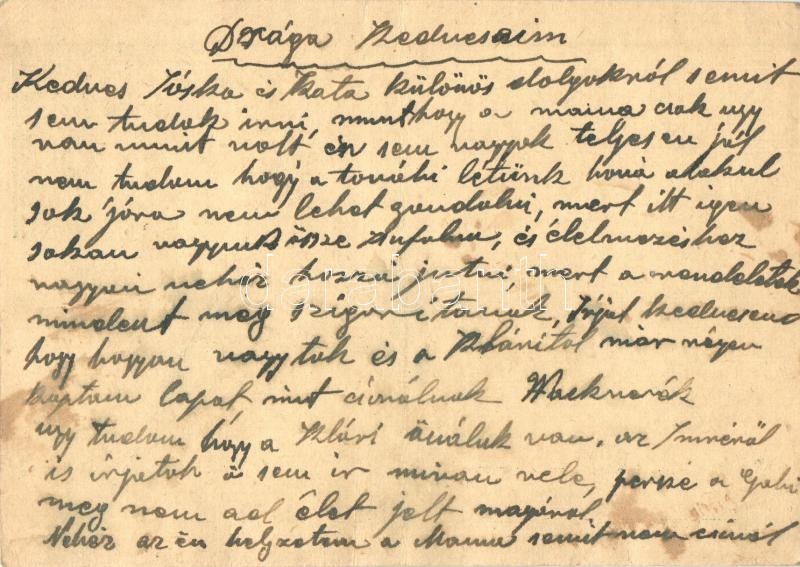 Drága Kedveseim
Kedves Jóska és Kata különös dolgokról semit
sem tudok irni, mint hogy a mama csak ugy
van mint volt, én sem vagyok teljesen jól
nem tudom hogy a továbi létünk hová alakul
sok jóra nem lehet gondolni, mert itt igen
sokan vagyunk össze zufolva, és élelmezéshez
nagyon nehéz hozzá jutni, mert a rendeletek
mindent meg szigoritanak. Irjál kedvesem
hogy hogyan vagytok és a Kláritól már régen
kaptam lapot mit csinálnak
ugy tudom hogy a Klári önáluk van, az Imréröl
is irjatok ö sem ir mi van vele, persze a Gabi
meg nem ad élet jelt magáról
Nehéz az én helyzetem a Mama semit nem csinál
darabanth